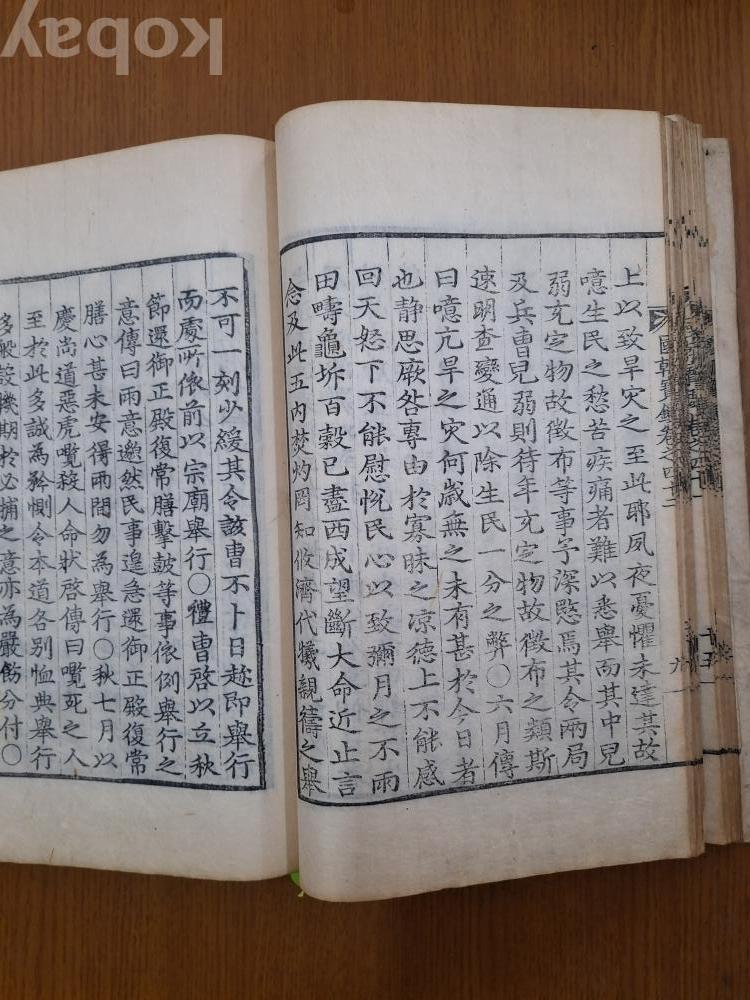 kobay
國朝寶鑑卷之四十三
上以致旱灾之至此耶夙夜憂懼未達其故
噫生民之愁苦疾痛者難以悉舉而其中兒
弱充定物故徵布等事予深愍焉其令兩局
及兵曹兒弱則待年充定物故徵布之類斯
速明查變通以除生民一分之弊〇六月傳
曰噫亢旱之灾何歲無之未有甚於今日者
也静思厥咎專由於寡昧之凉德上不能感
回天怒下不能慰悅民心以致彌月之不雨
田疇龜坼百穀已盡西成望斷大命近止言
念及此五内焚灼罔知攸濟代犧親禱之舉
不可一刻少緩其令該曹不卜日趁即舉行
而處所依前以宗廟舉行〇禮曹啓以立秋
節還御正殿復常膳擊鼓等事依例舉行之
意傳曰雨意邈然民事遑急還御正殿復常
膳心甚未安得雨間勿為舉行〇秋七月以
慶尚道惡虎囕殺人命狀啓傳曰囕死之人
至於此多誠為矜惻令本道各別恤典舉行
多般設機期於必捕之意亦為嚴飭分付〇